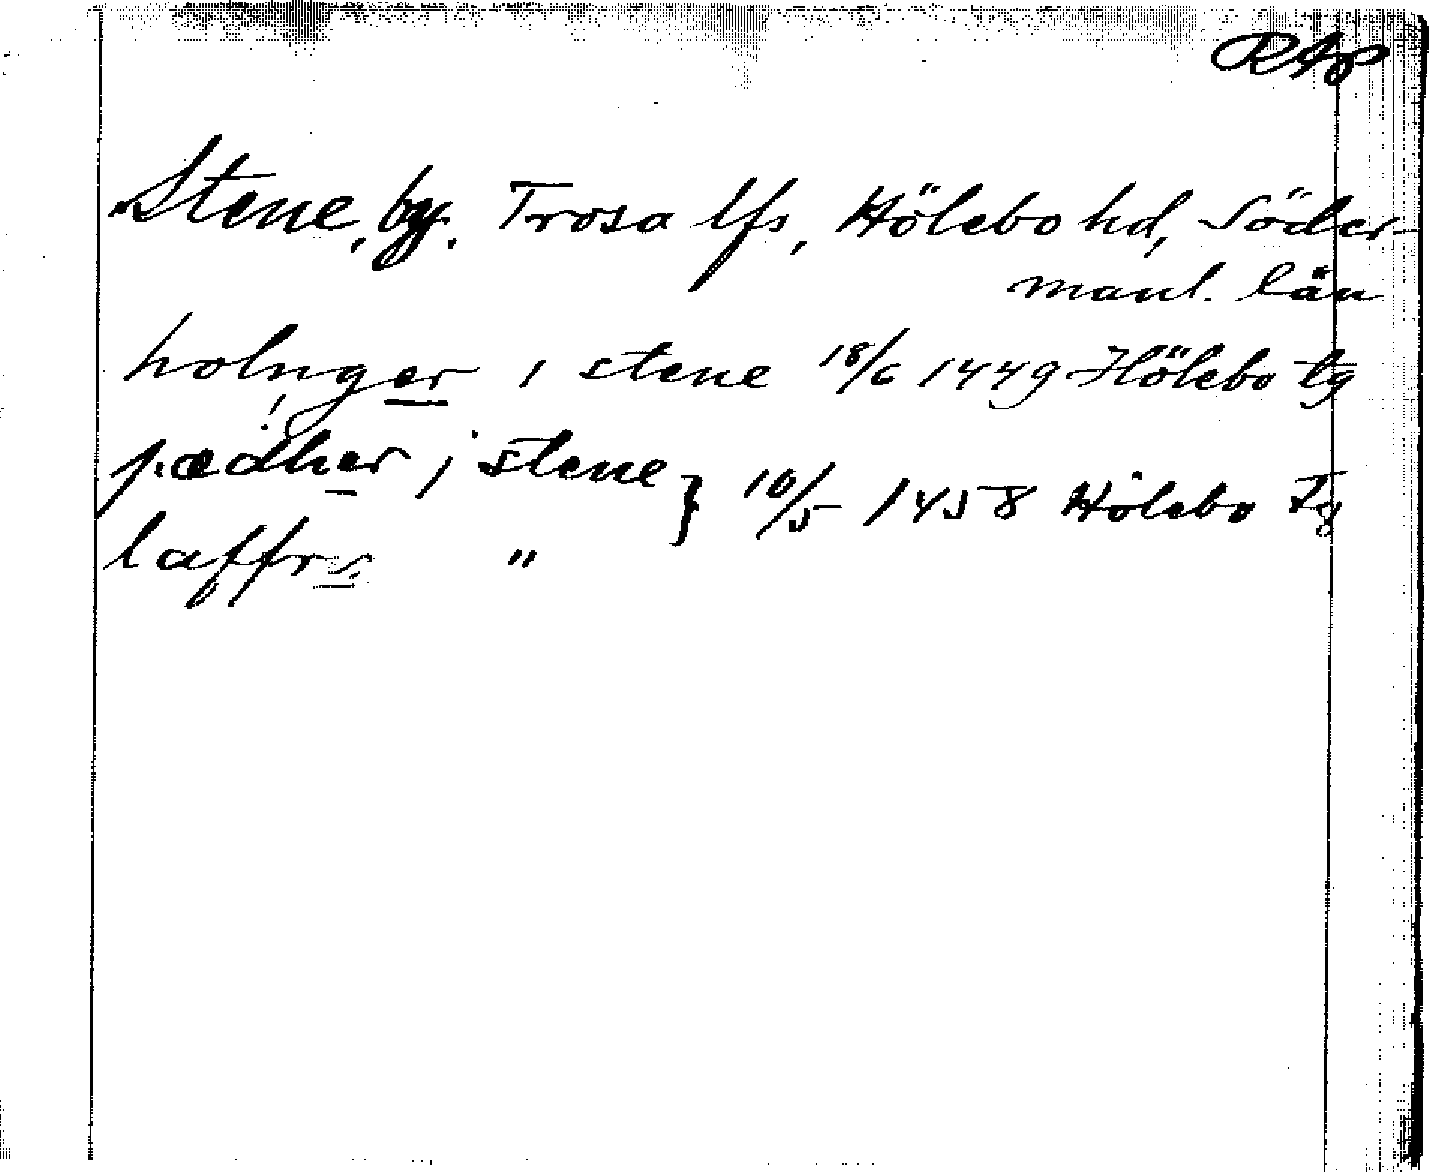 RAP
Stene, by. Trosa lfs, Hölebo hd, Söder-
manl. län
holnger i stene 18/6 1449 Hölebo tg
!
pædher j stene } 10/5 1458 Hölebo tg
laffris "